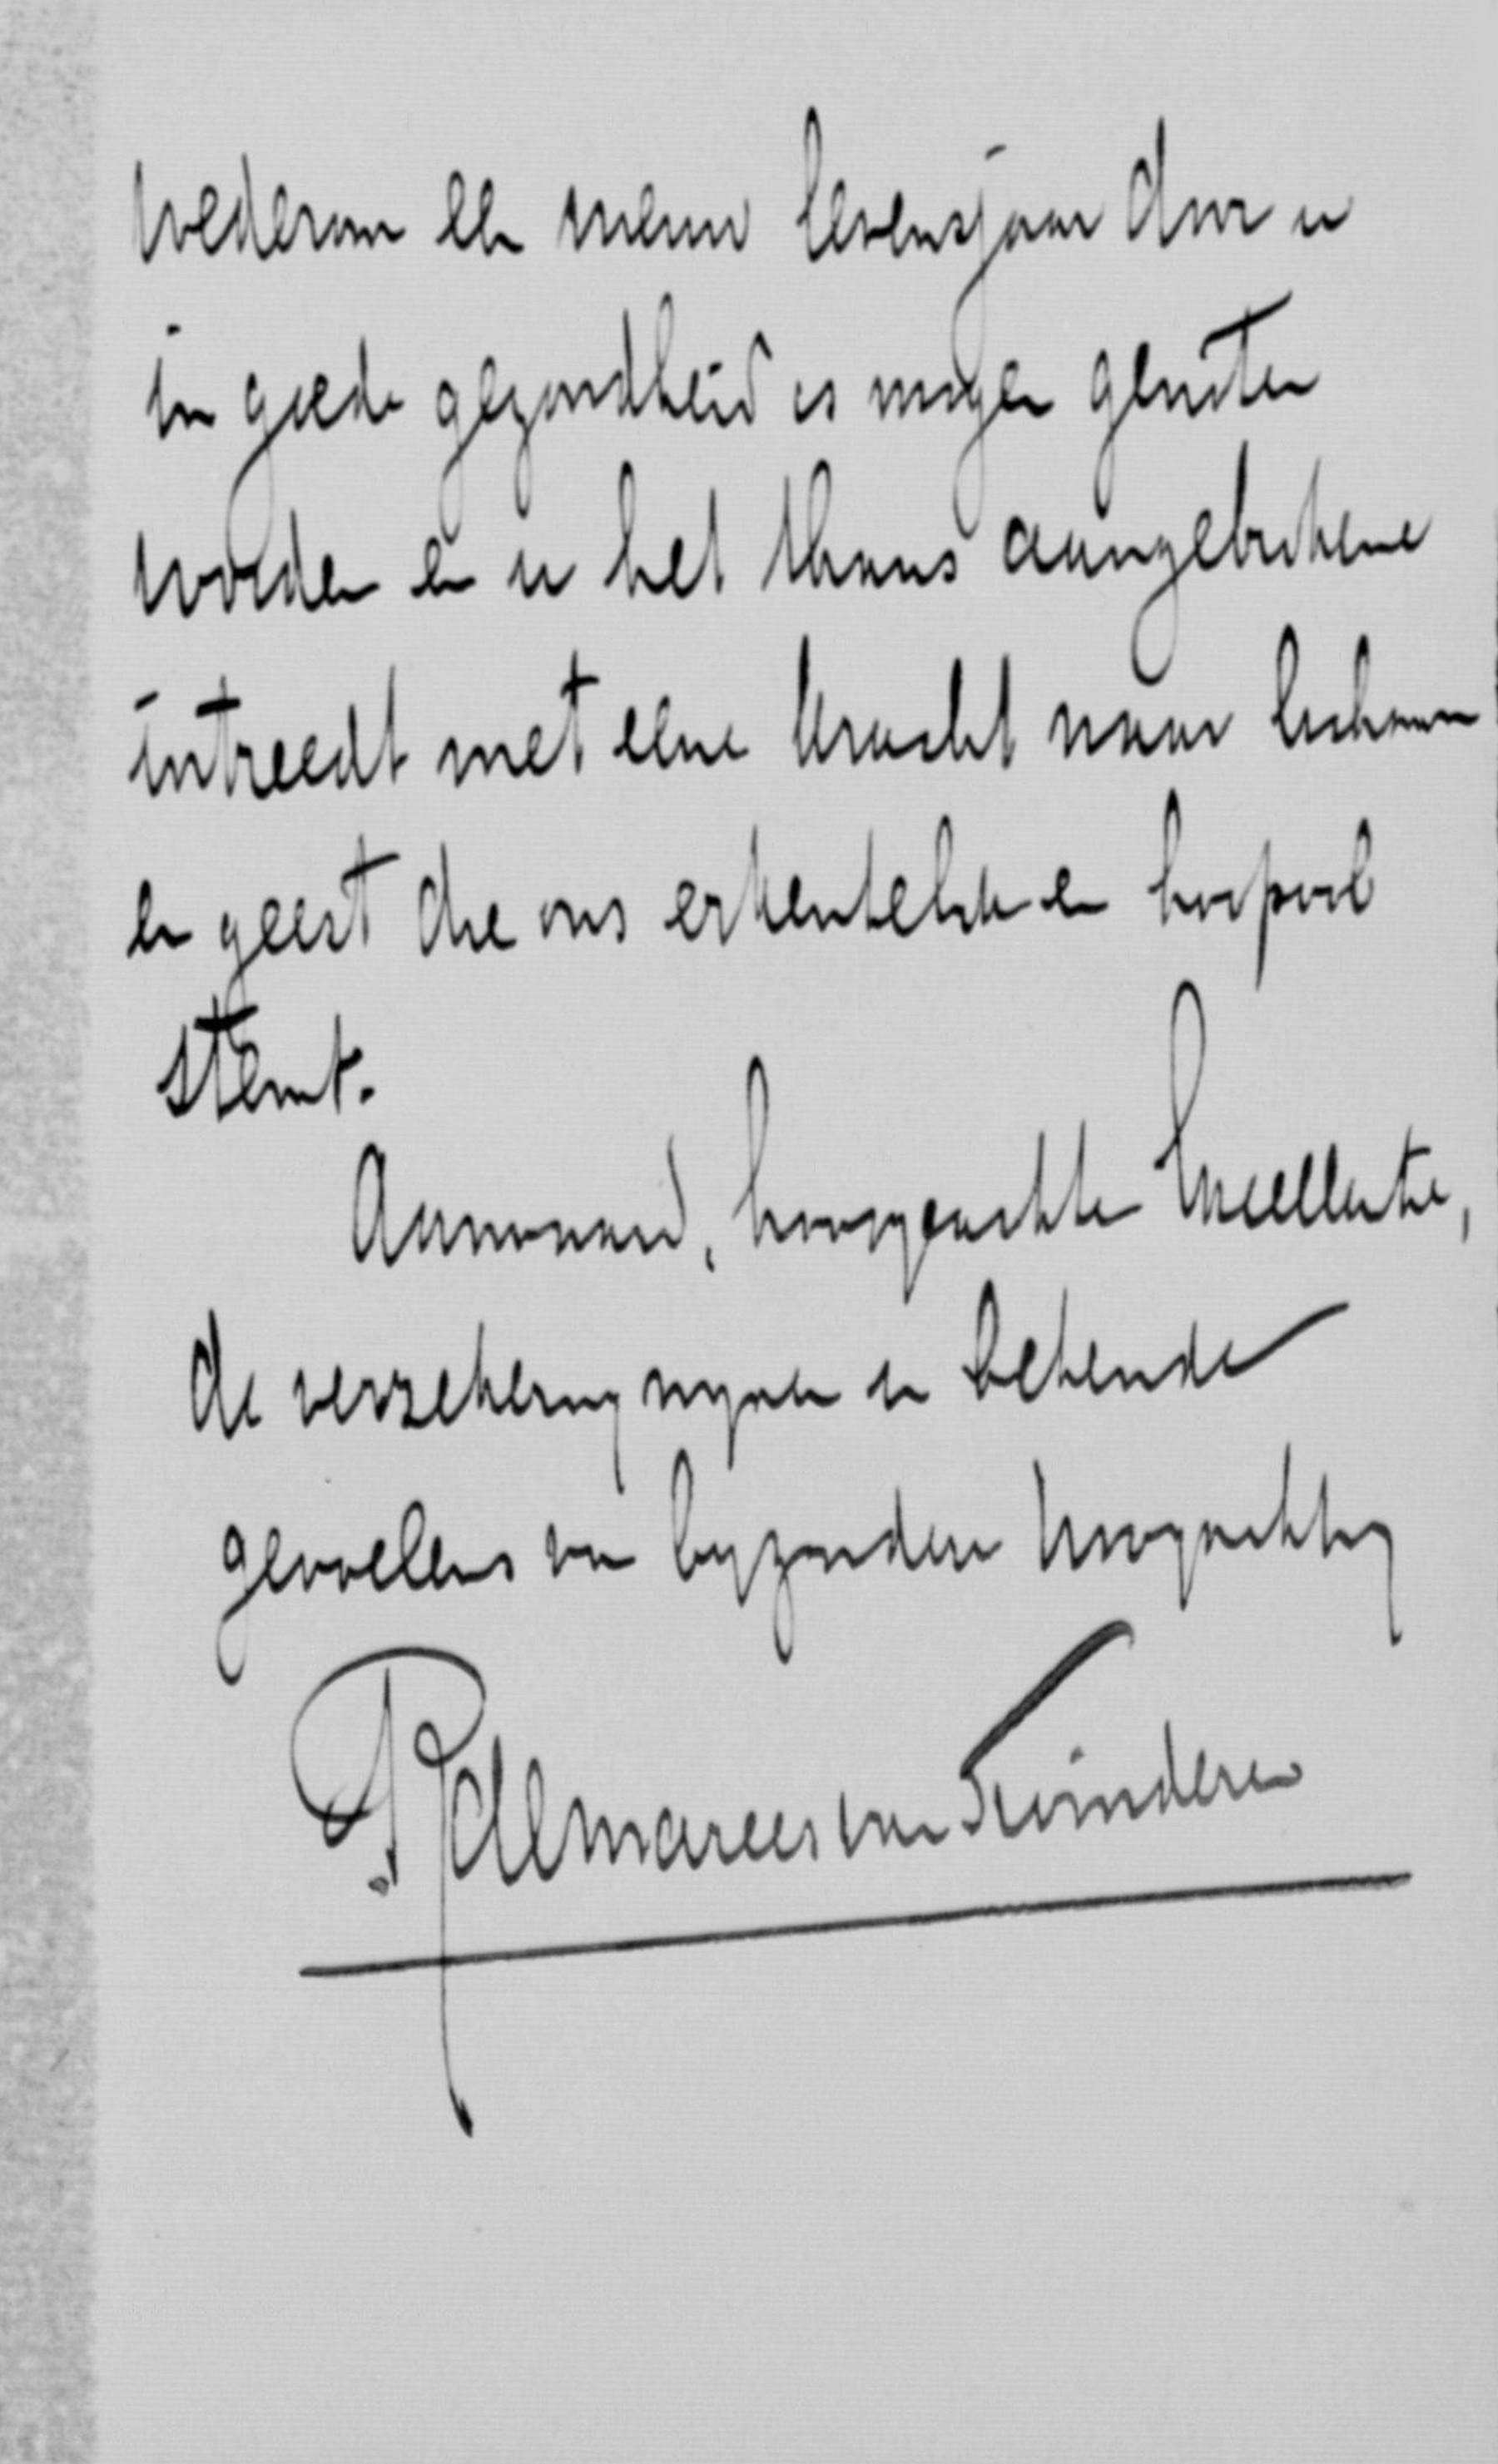 wederom een nieuw levensjaar door u
in goede gezondheid is mogen genoten
worden en u het thans aangebrokene
intreedt met eene kracht naar lichaam
en geest die ons erkentelijk en hoopvol
stemt.
Aanvaard, hooggeachte Excellentie,
de verzekering mijner u bekende
gevoelens van bijzondere hoogachting
R de Marees van Swinderen